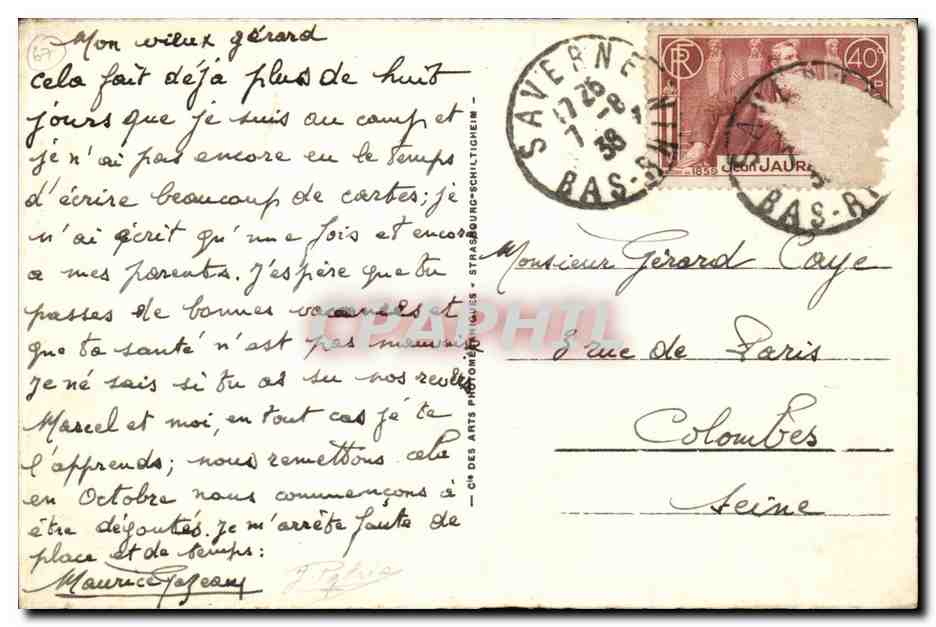 67
Mon vieux gérard
cela fait déjà plus de huit
jours que je suis au camp et
je n'ai pas encore eu le temps
d'écrire beaucoup de cartes; je
n'ai écrit qu'une fois et encore
a mes parents. J'espère que tu
passes de bonnes vacances et
que ta santé n'est pas mauvaise
Je né sais si tu as su nos revers
Marcel et moi, en tout cas je te
l'apprends; nous remettons cela
en Octobre nous commençons à
être dégoutés. Je m'arrête faute de
place et de temps:
Maurice
— Cie DES ARTS PHOTOMÉCHANIQUES - STRASBOURG-SCHILTIGHEIM —
SAVERNE
17 26
7 -8
38
BAS-RHIN
RF
40c
1859
Jean JAUR
BAS-R
CPAPHIL
Monsieur Gérard Caye
3 rue de Paris
Colombes
Seine